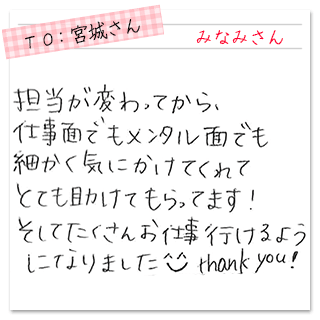 TO：宮城さん
みなみさん
担当が変わってから、
仕事面でもメンタル面でも
細かく気にかけてくれて
とても助けてもらってます！
そしてたくさんお仕事行けるよう
になりました thank you!